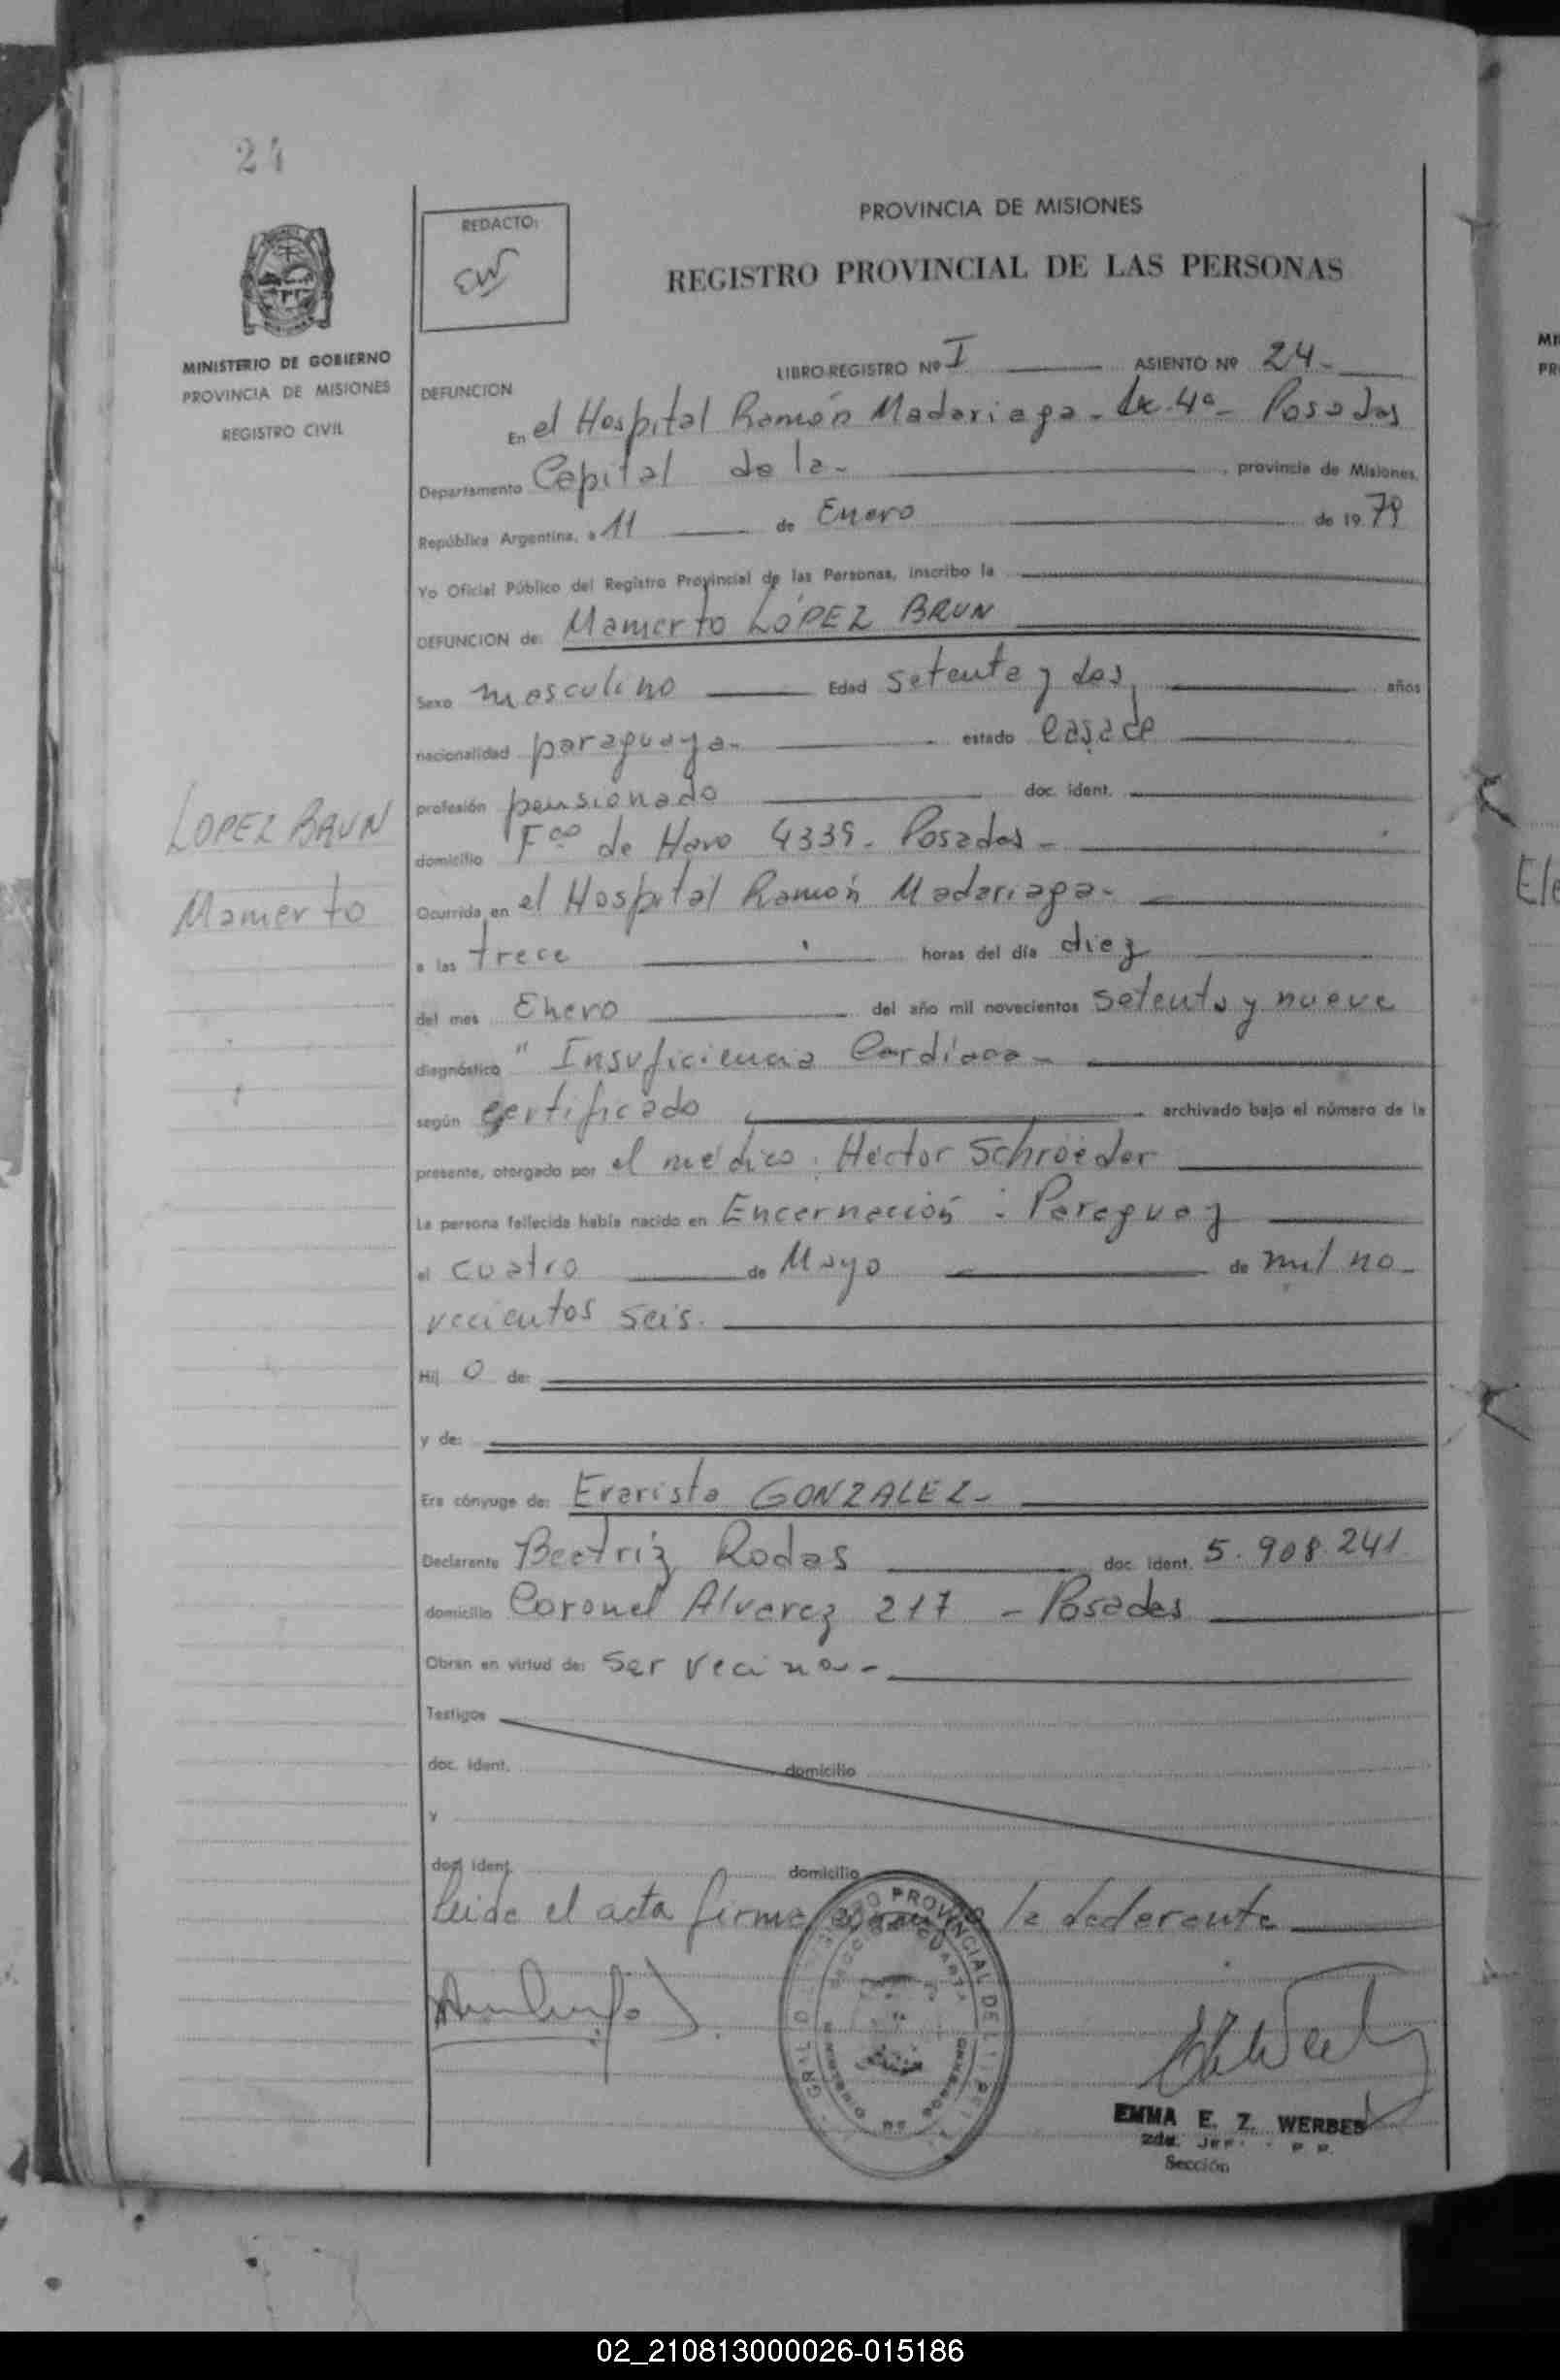 24
REDACTO:
PROVINCIA DE MISIONES
REGISTRO PROVINCIAL DE LAS PERSONAS
MINISTERIO DE GOBIERNO
PROVINCIA DE MISIONES
REGISTRO CIVIL
LIBRO-REGISTRO Nº I ASIENTO Nº 24-
DEFUNCION
En el Hospital Ramón Madariaga - 4ª - Posadas
Departamento Capital de la - , provincia de Misiones.
República Argentina, a 11 de Enero de 19 79
Yo Oficial Público del Registro Provincial de las Personas, inscribo la
DEFUNCION de: Mamerto LÓPEZ BRUN
Sexo masculino Edad setenta y dos años
nacionalidad paraguaya- estado casado
profesión pensionado doc. ident.
domicilio Fco de Haro 4339- Posadas -
LOPEZ BRUN
Mamerto
Ocurrida en el Hospital Ramón Madariaga-
a las trece horas del día diez
del mes Enero del año mil novecientos setenta y nueve
diagnóstico " Insuficiencia Cardíaca -
según certificado archivado bajo el número de la
presente, otorgado por el médico: Héctor Schröeder
La persona fallecida había nacido en Encarnación - Paraguay
el cuatro de Mayo de mil no-
vecientos seis.
Hij o de:
y de:
Era cónyuge de: Evarista GONZALEZ-
Declarante Beatriz Rodas doc. ident. 5.908.241
domicilio Coronel Alvarez 217 - Posadas
Obran en virtud de: ser vecina -
Testigos
doc. ident. domicilio
y
doc. ident. domicilio
Leida el acta firma la declarante
EMMA E. Z. WERBES
Sección
02_210813000026-015186